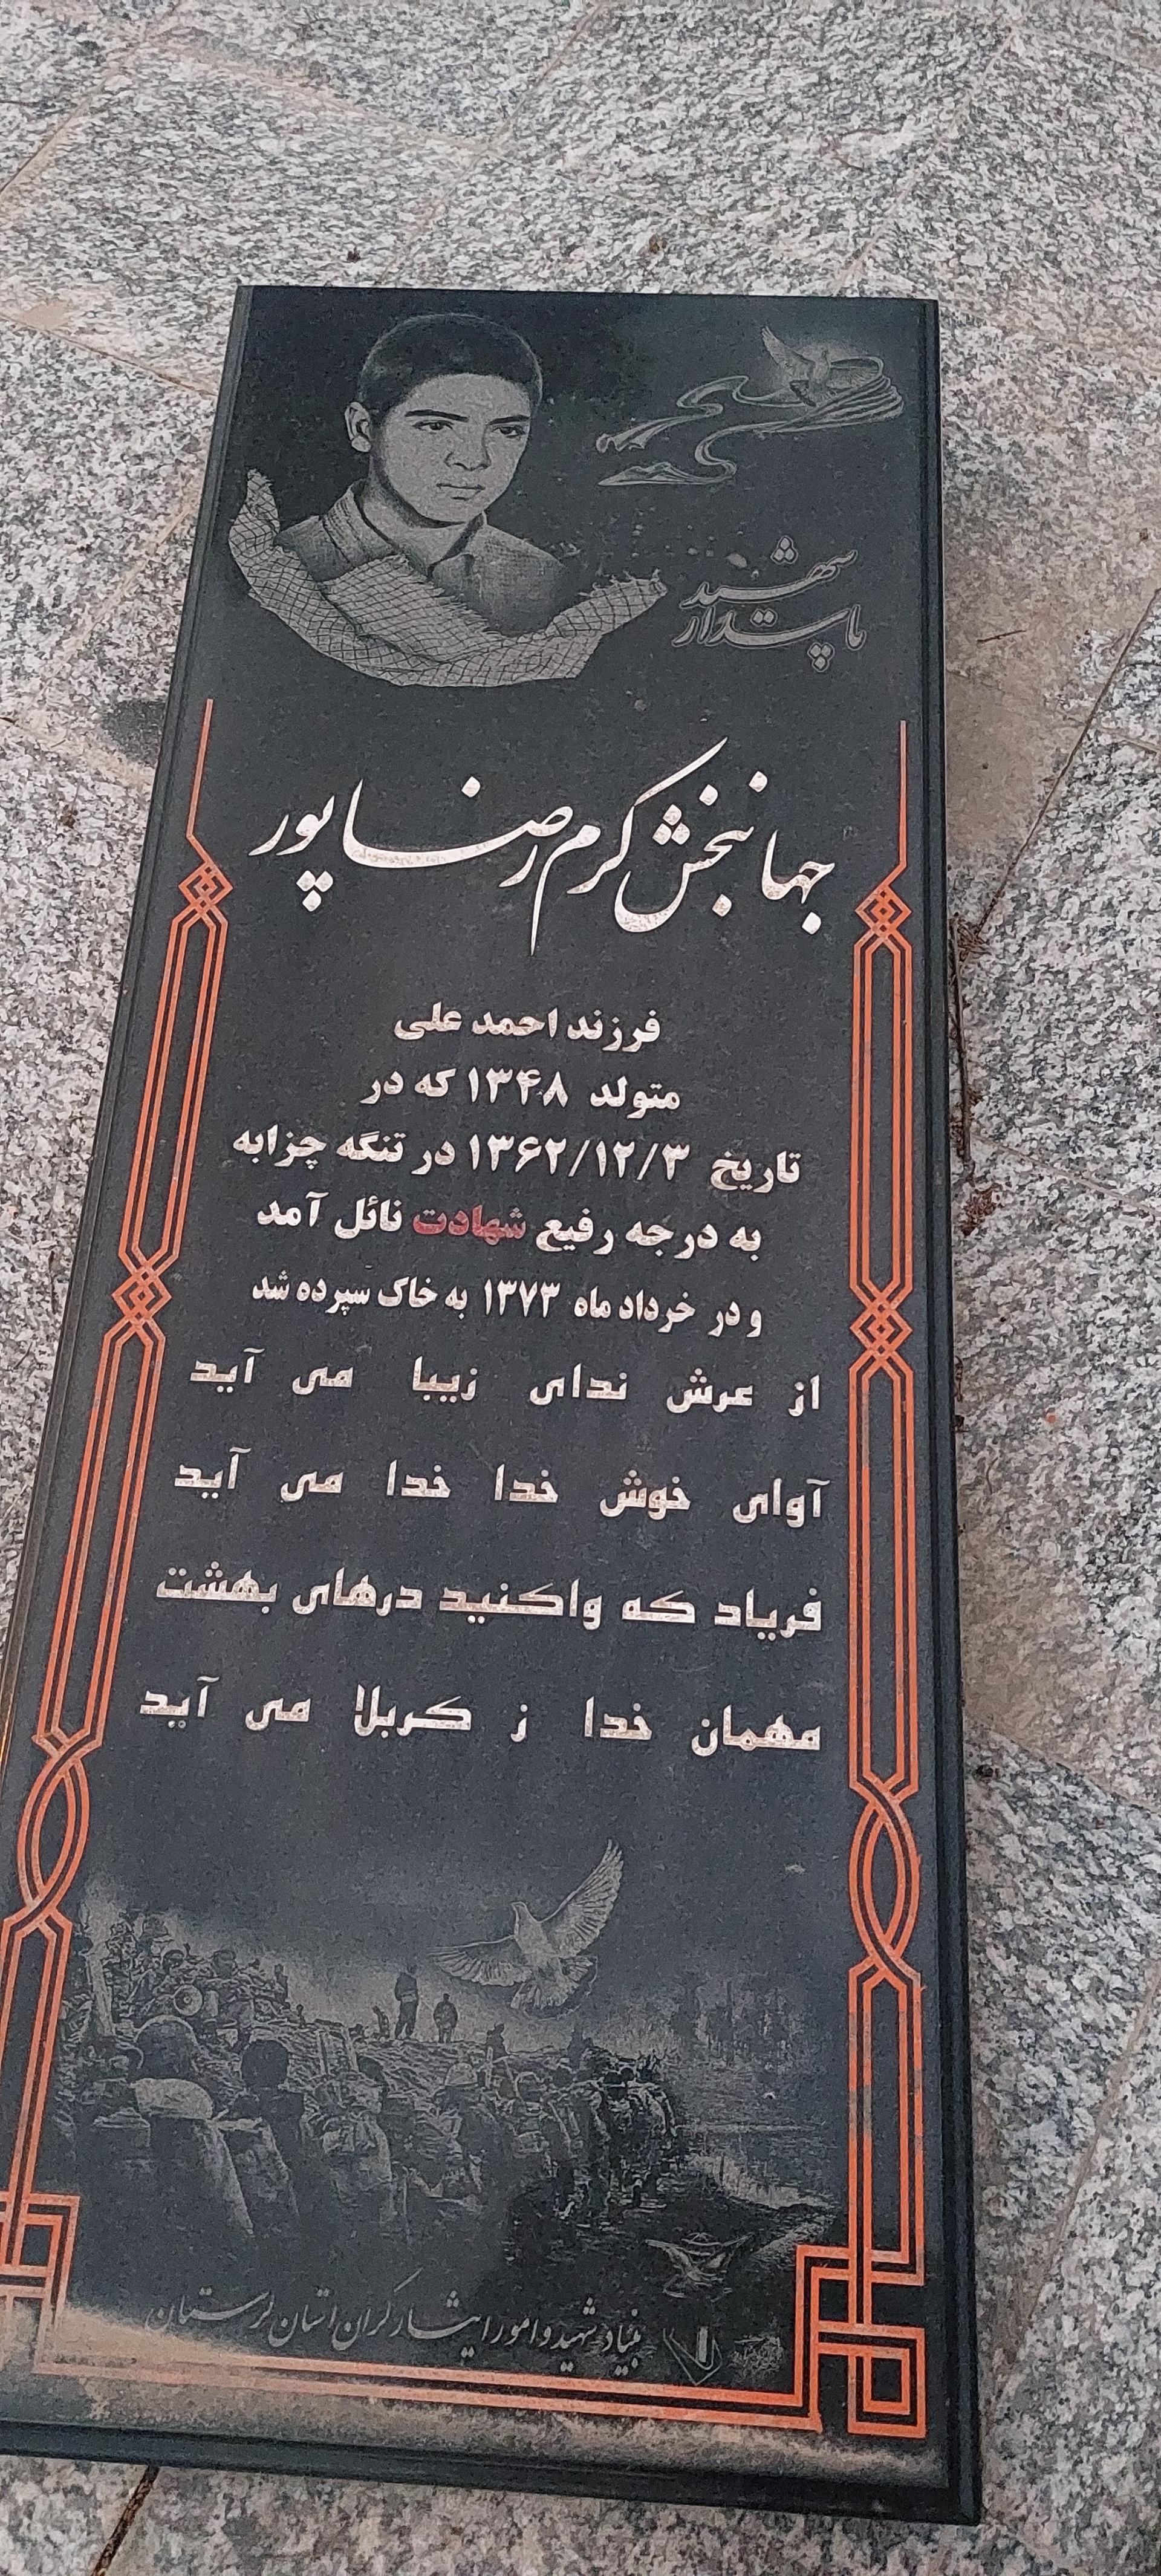 شهید
پاسدار
جهانبخش کرم رضا پور
فرزند احمد علی
متولد ۱۳۴۸ که در
تاریخ ۱۳۶۲/۱۲/۳ در تنگه چزابه
به درجه رفیع شهادت نائل آمد
و در خرداد ماه ۱۳۷۳ به خاک سپرده شد
از عرش ندای زیبا می آید
آوای خوش خدا خدا می آید
فریاد که واکنید درهای بهشت
مهمان خدا ز کربلا می آید
بنیاد شهید و امور ایثارگران استان لرستان